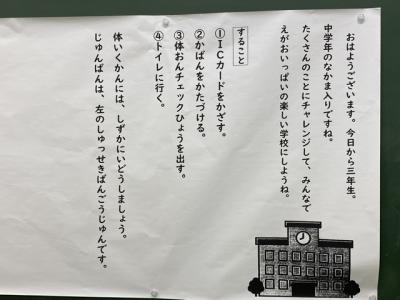 おはようございます。今日から三年生。
中学年のなかま入りですね。
たくさんのことにチャレンジして、みんなで
えがおいっぱいの楽しい学校にしようね。
すること
①ICカードをかざす。
②かばんをかたづける。
③体おんチェックひょうを出す。
④トイレに行く。
体いくかんには、しずかにいどうしましょう。
じゅんばんは、左のしゅっせきばんごうじゅんです。